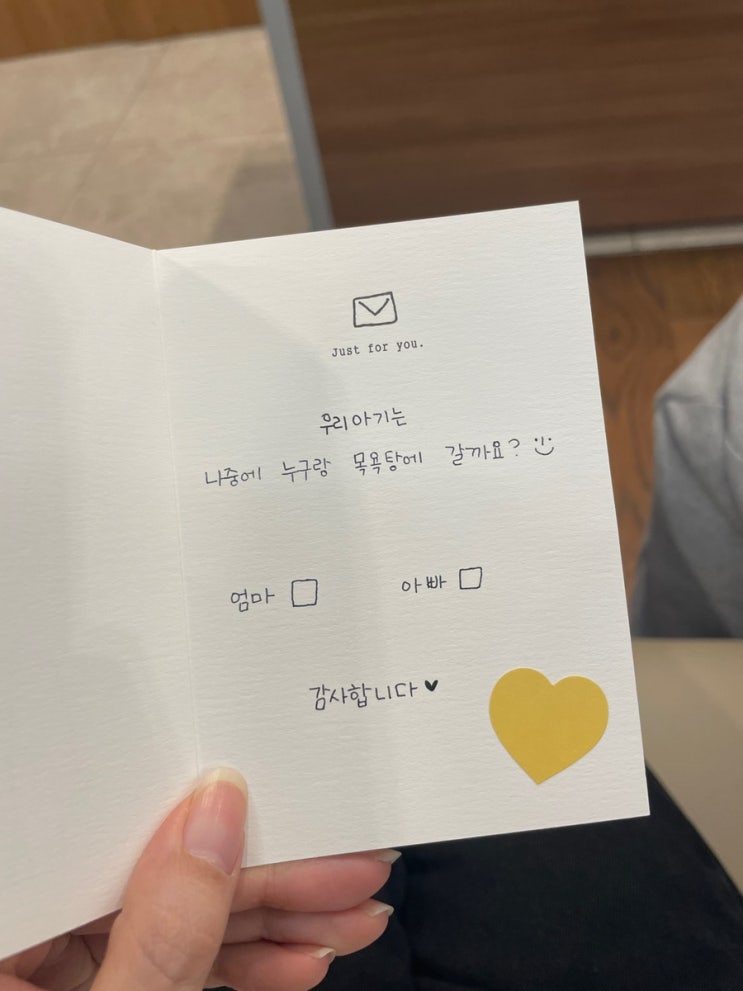 Just for you.
우리아기는
나중에 누구랑 목욕탕에 갈까요?
엄마 아빠
감사합니다